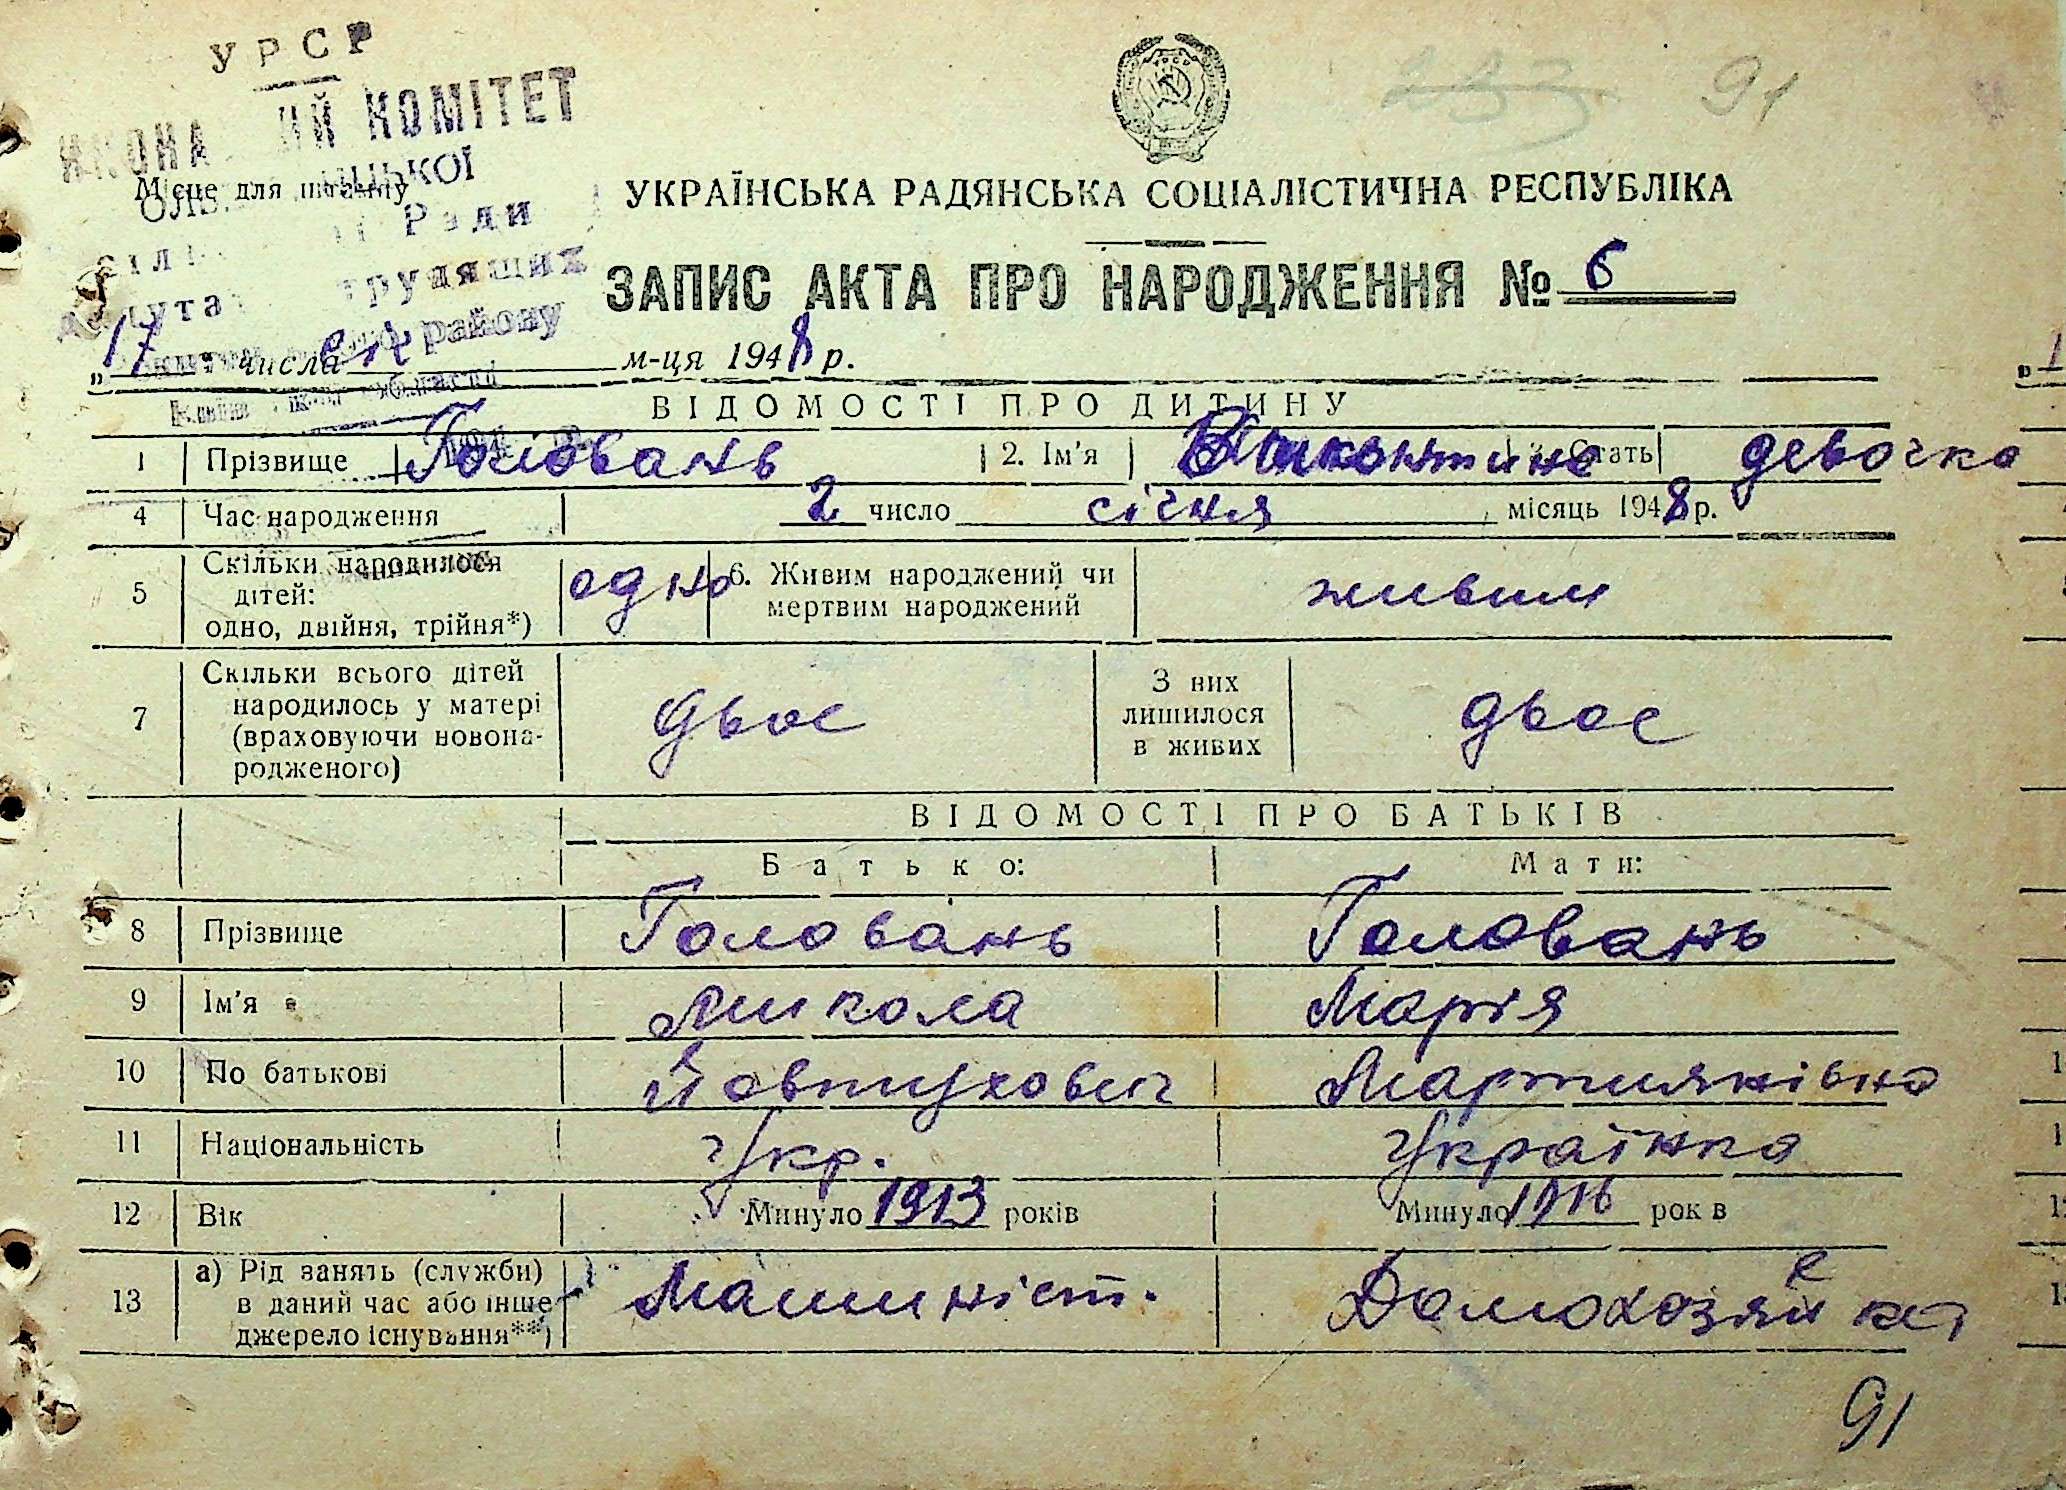 УРСР
КОМІТЕТ
Ради
трудящих
району
Місце для штампу
233 91
УКРАЇНСЬКА РАДЯНСЬКА СОЦІАЛІСТИЧНА РЕСПУБЛІКА
ЗАПИС АКТА ПРО НАРОДЖЕННЯ № 6
„17" числа м-ця 1948 р.
ВІДОМОСТІ ПРО ДИТИНУ
1 Прізвище Головань 2. Ім'я Стать девочка
4 Час народження 2 число січня місяць 1948 р.
5 Скільки народилося дітей: одно, двійня, трійня*) одно 6. Живим народжений чи мертвим народжений живим
7 Скільки всього дітей народилось у матері (враховуючи новона-родженого) двое З них лишилося в живих двое
ВІДОМОСТІ ПРО БАТЬКІВ
Батько: Мати:
8 Прізвище Головань Головань
9 Ім'я Микола Марія
10 По батькові Йовтухович Мартиянівна
11 Національність Укр. Українка
12 Вік Минуло 1913 років Минуло 1916 рок в
13 а) Рід занять (служби) в даний час або інше джерело існування**) Машиніст. Домохозяйка
91